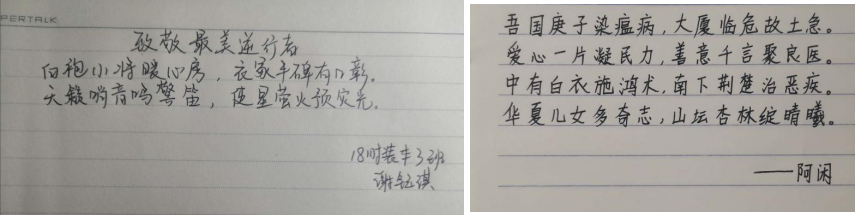 PERTALK
致敬最美逆行者
白袍小将暖心房，衣冢丰碑有口彰。
天籁哨音鸣警笛，使星萤火预灾光。
18时装丰3班
谢钰琪
吾国庚子染瘟病，大厦临危故土急。
爱心一片凝民力，善意千言聚良医。
中有白衣施鸿术，南下荆楚治恶疾。
华夏儿女多奇志，山坛杏林绽晴曦。
——阿闲